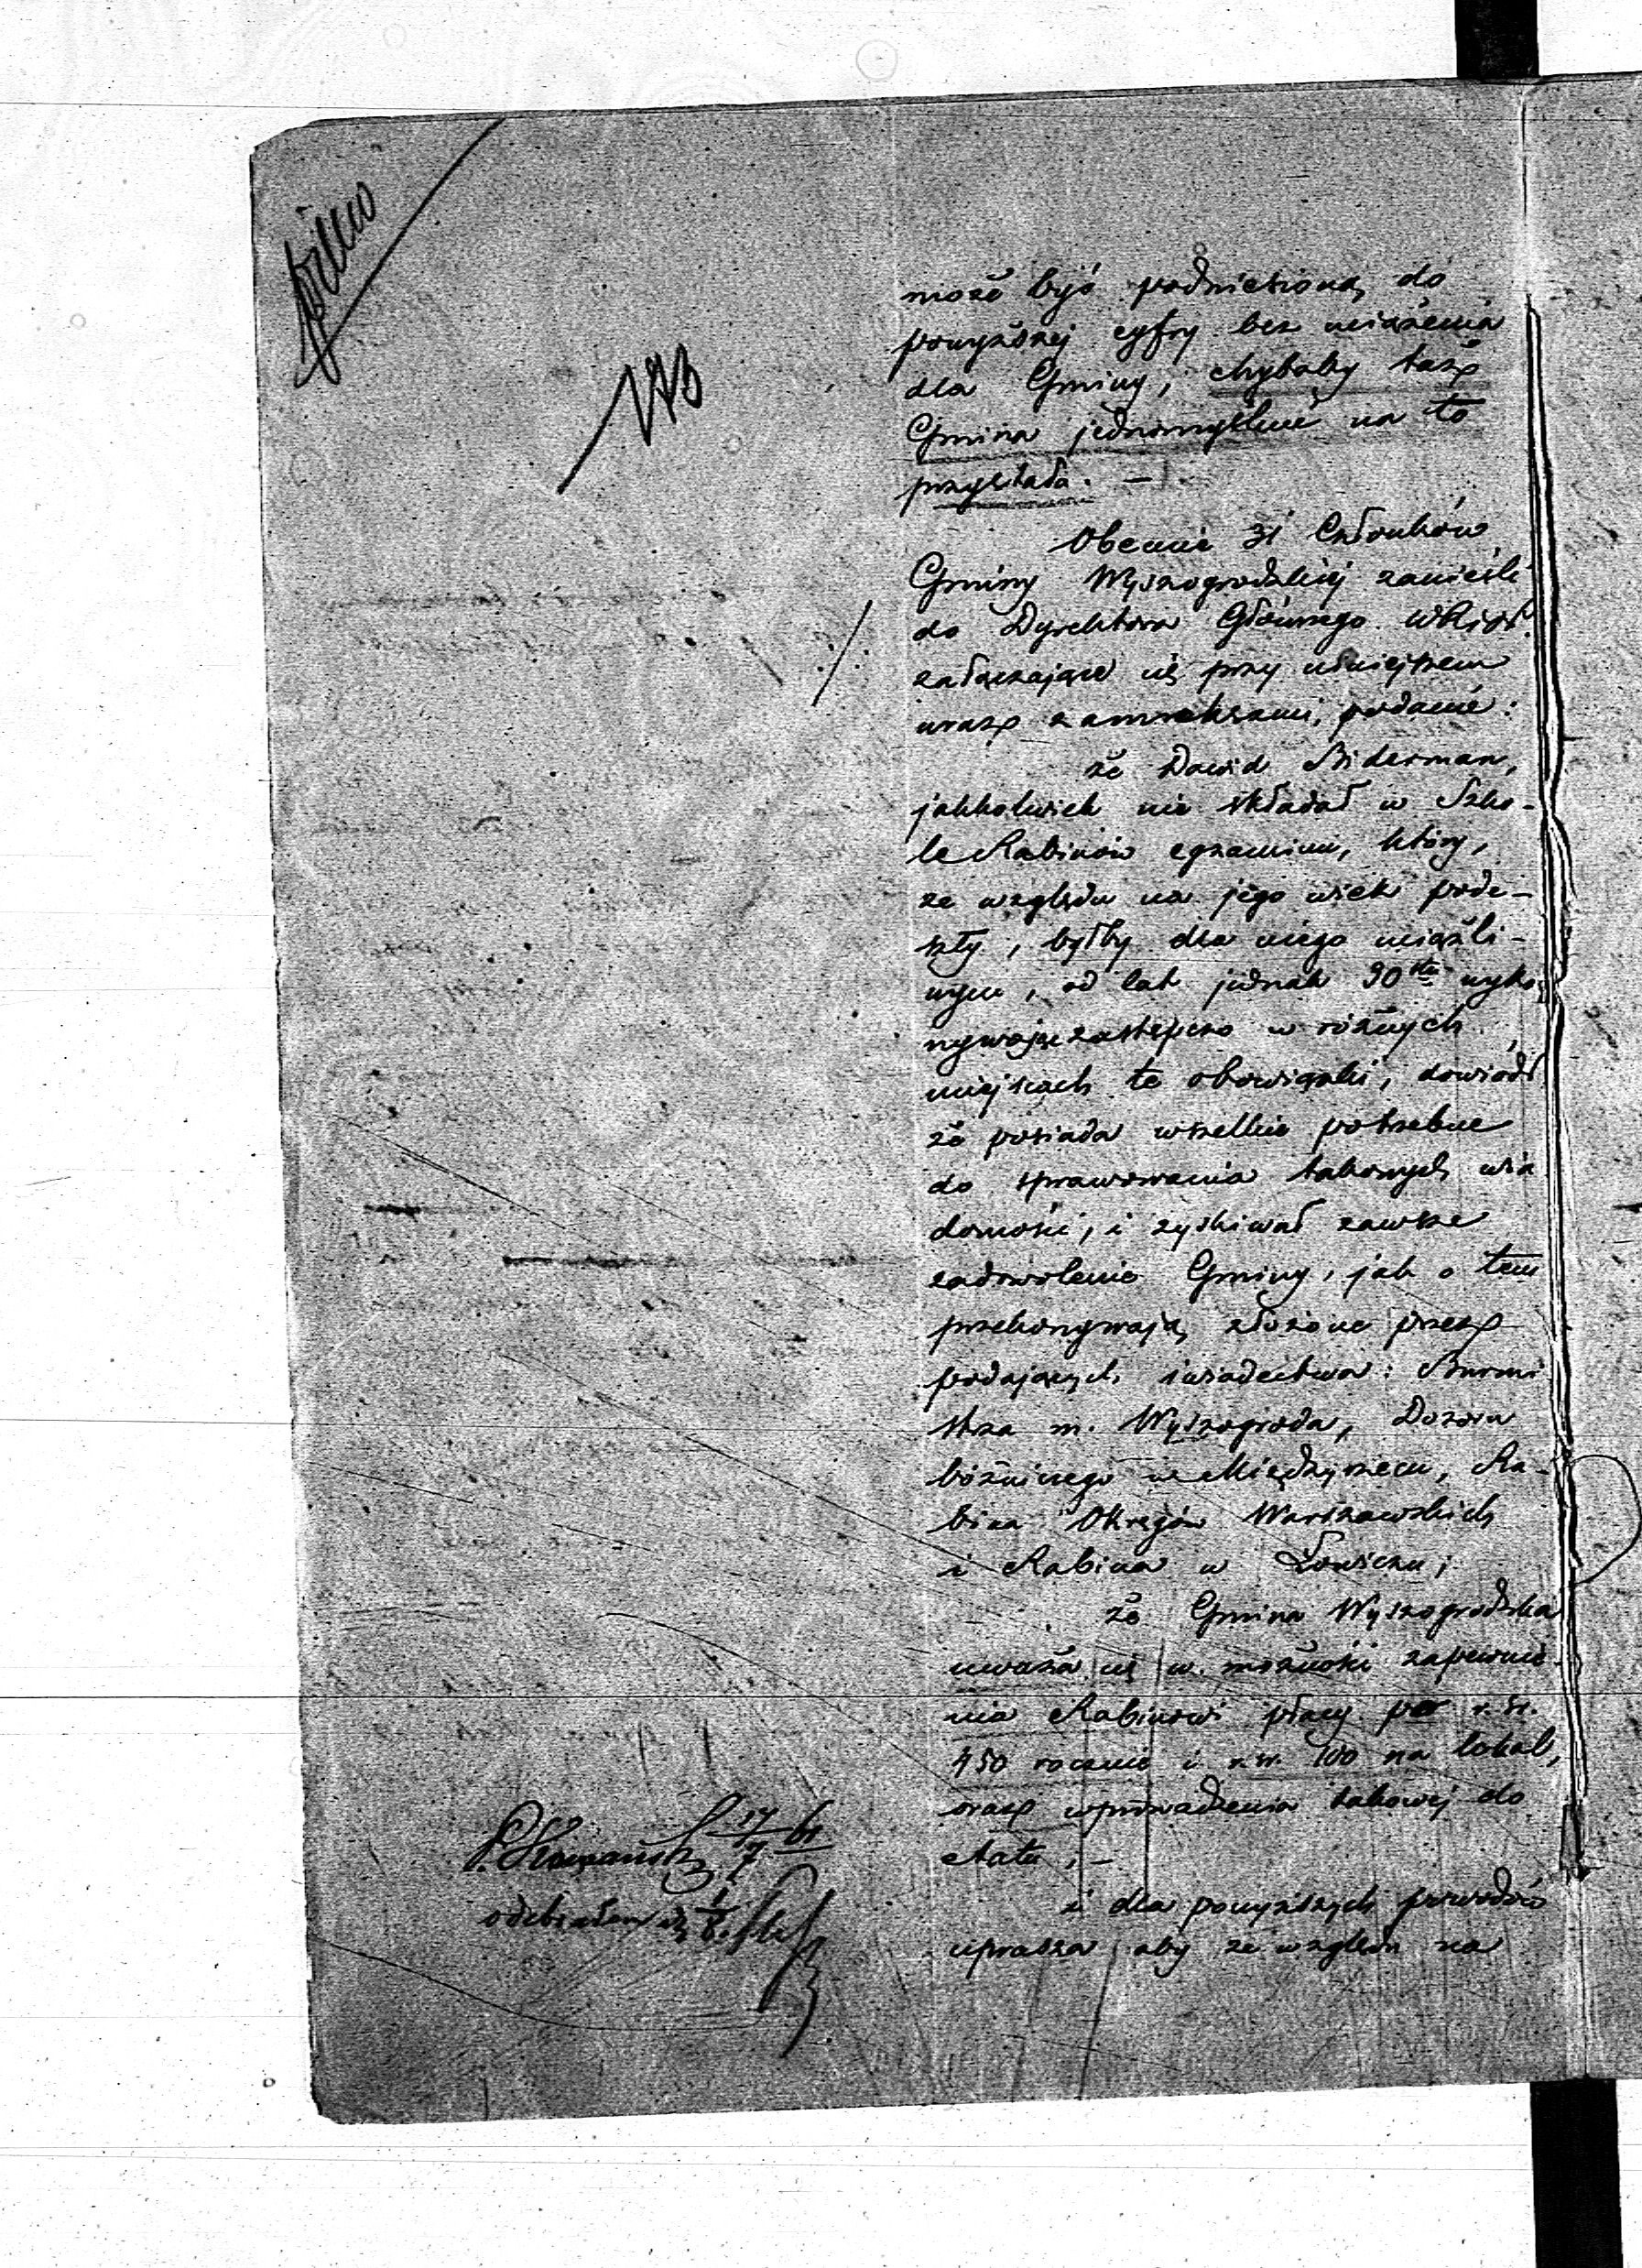 pilno
może być podniesioną do
powyższej cyfry bez uciążenia
dla Gminy, chybaby taż
Gmina jednomyślnie na to
przystała. —
Obecnie 31 Członków
Gminy Wyszogrodzkiej zanieśli
do Dyrektora Głównego
załączające się przy niniejszem
wraz z annexami, podanie:
że Dawid Biderman,
jakkolwiek nie składał w Szko-
le Rabinów egzaminu, który,
ze względu na jego wiek pode-
szły, byłby dla niego uciążli-
wym, od lat jednak 30stu wyko-
nywając zastępczo w różnych
miejscach te obowiązki, dowiódł
że posiada wszelkie potrzebne
do sprawowania takowych wia
domości, i zyskiwał zawsze
zadowolenie Gminy, jak o tem
przekonywają złożone przez
podających świadectwa: Burmi
strza m. Wyszogroda, Dozoru
bóżniczego w Międzyrzecu, Ra-
bina Okręgów Warszawskich
i Rabina w Łowiczu;
że Gmina Wyszogrodzka
uważa się w możności zapewnie-
nia Rabinowi płacy po r. sr.
450 rocznie i r. sr. 100 na lokal,
oraz wprowadzenia takowej do
etatu, —
i dla powyższych powodów
uprasza aby ze względu na
17/7 61
odebrałem